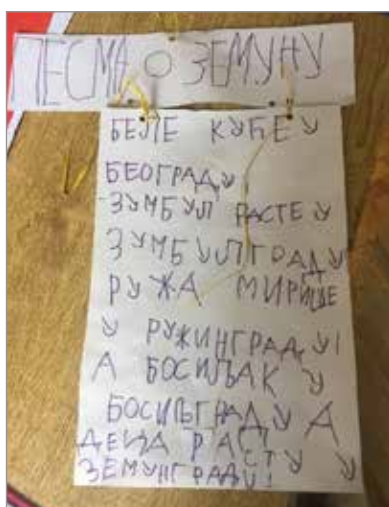 ПЕСМА О ЗЕМУНУ
БЕЛЕ КУЋЕ У
БЕОГРАДУ
ЗУМБУЛ РАСТЕ У
ЗУМБУЛГРАДУ
РУЖА МИРИШЕ
У РУЖИНГРАДУ!
А БОСИЉАК У
БОСИЉГРАДУ А
ДЕЦА РАСТУ У
ЗЕМУНГРАДУ!